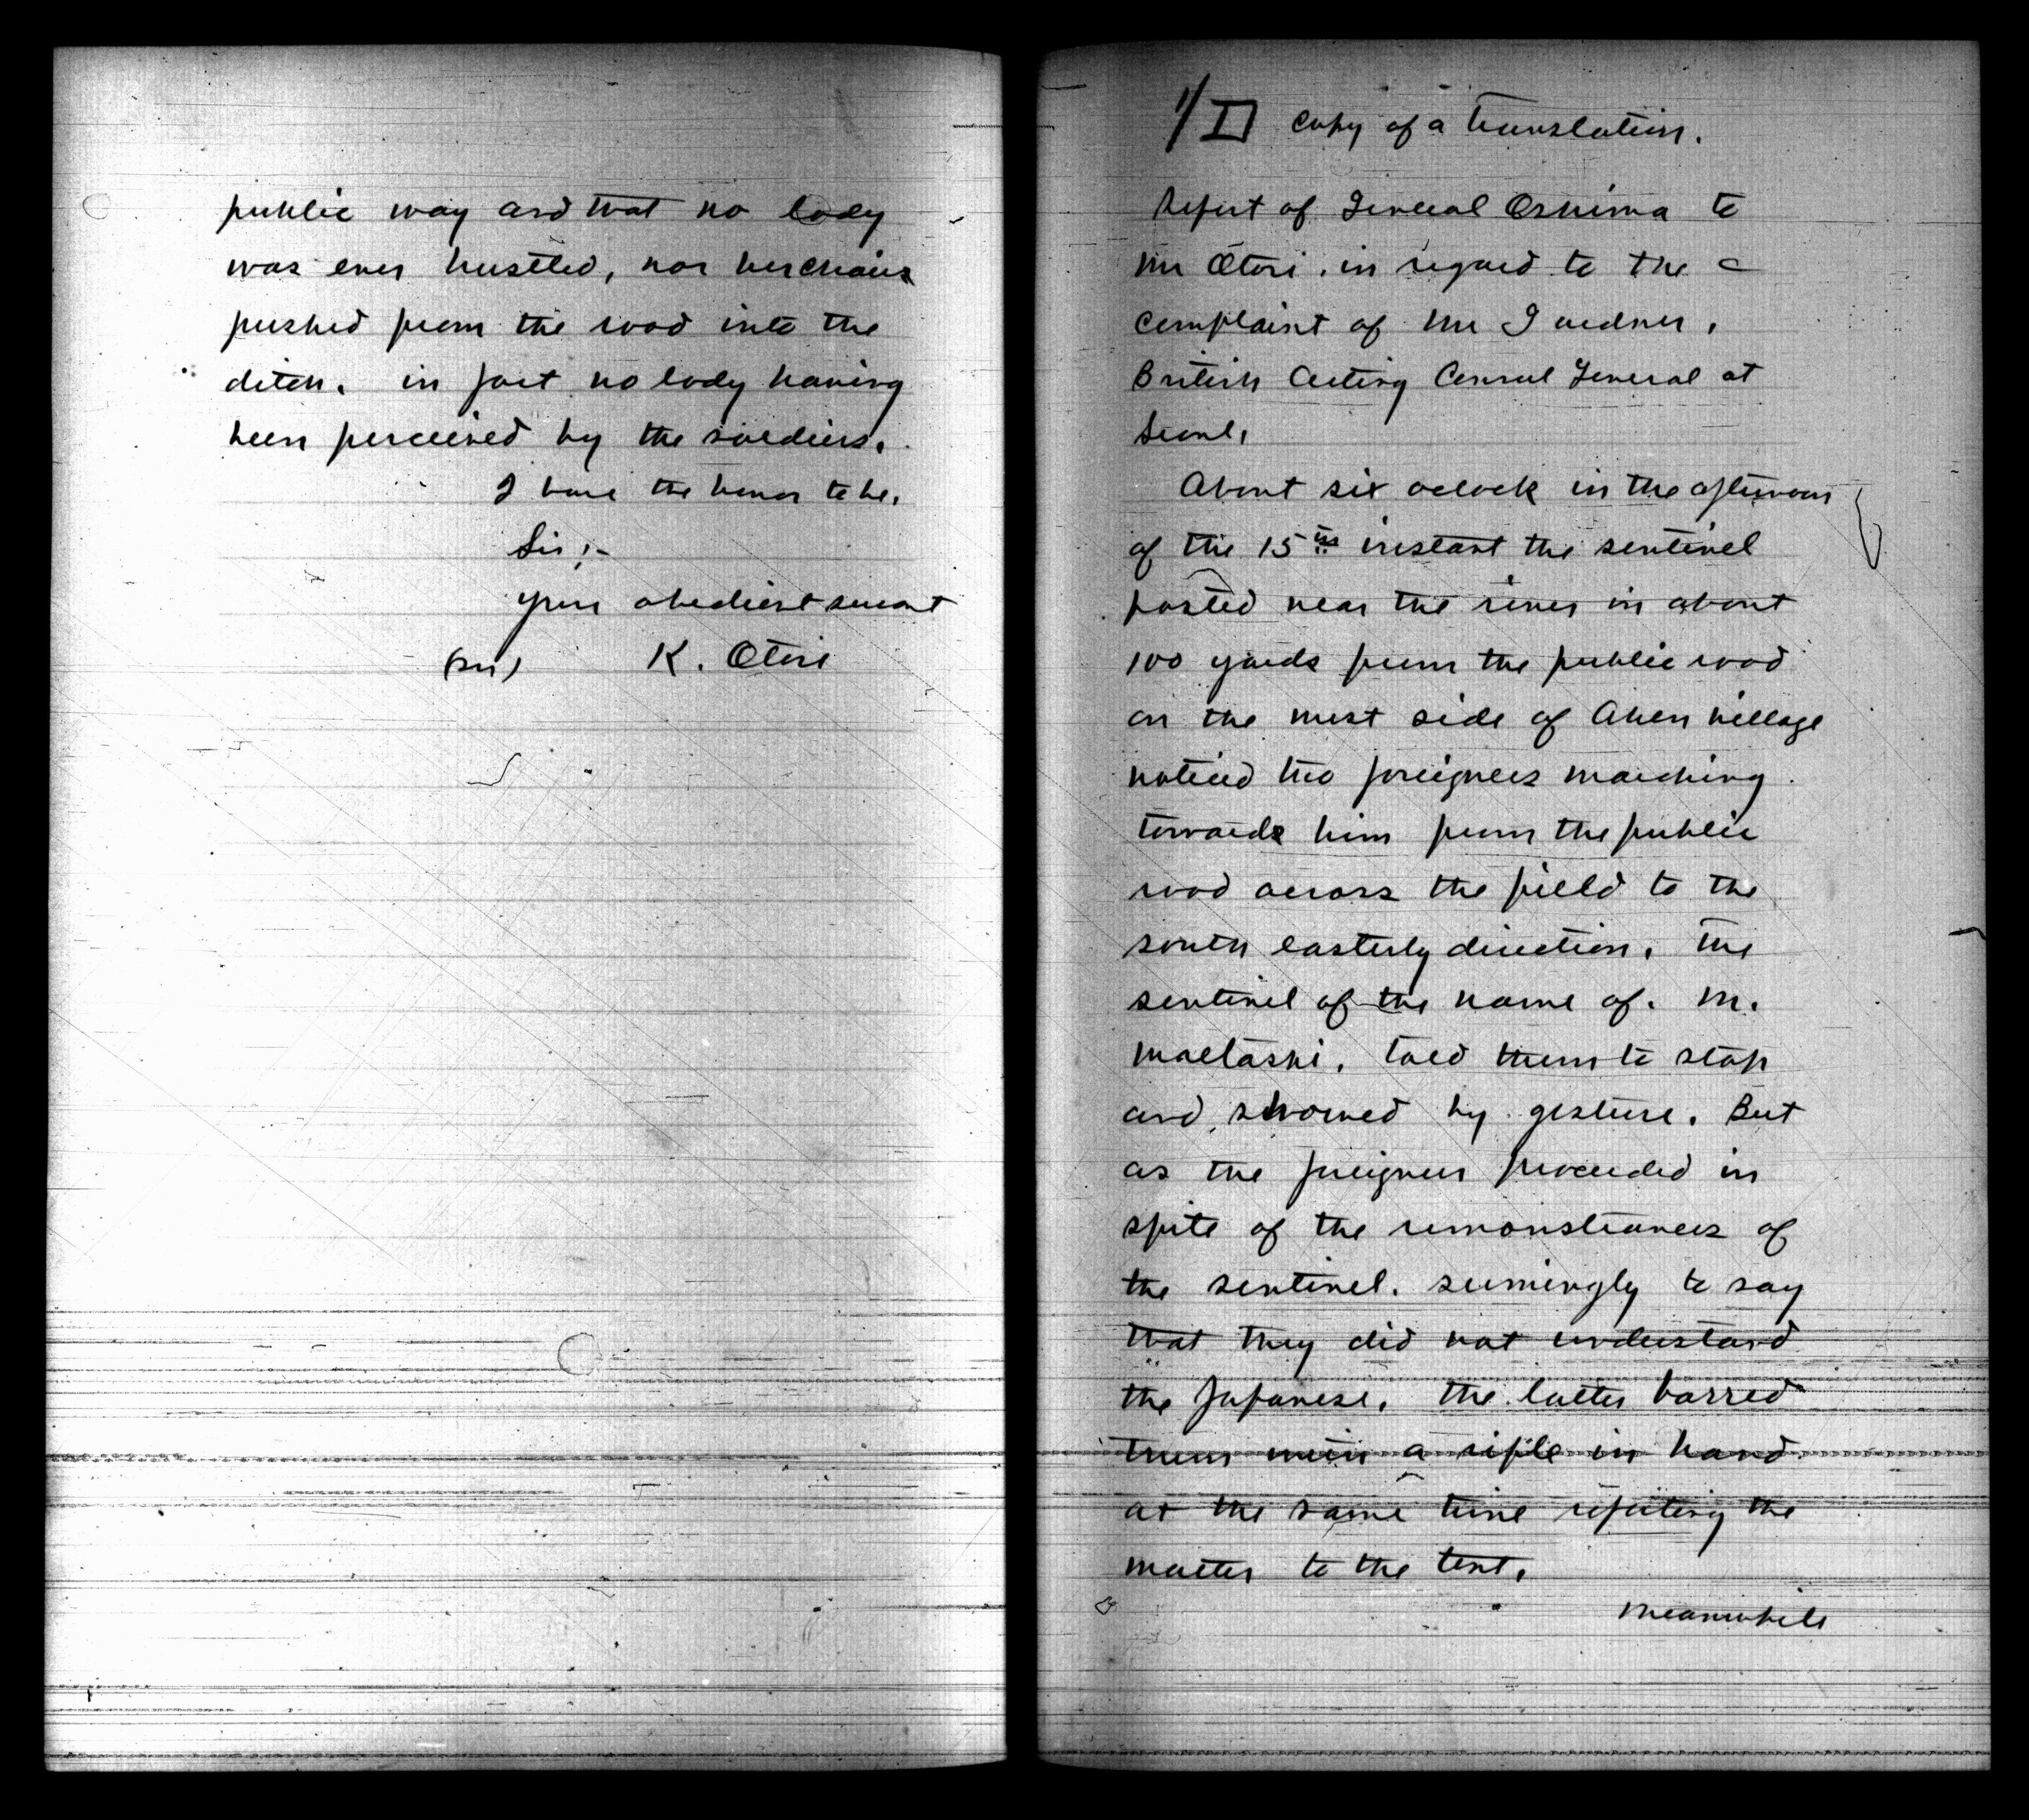 public way and that no lady
was ever hustled, nor her chair
pushed from the road into the
ditch. in fact no lady having
been perceived by the soldiers.
I have the honor to be,
Sir;-
your obedient servant
K. Otori
1/II Copy of a translation.
Report of General Oshima to
Mr Otori. in regard to the
complaint of Mr Gardner,
British Acting Consul General at
Seoul,
About six oclock in the afternoon
of the 15th instant the sentinel
posted near the river in about
100 yards from the public road
on the west side of Ahen village
noticed two foreigners marching
towards him from the public
road across the field to the
south easterly direction. The
sentinel of the name of. M.
told them to stop
and showed by gesture. But
as the foreigners proceeded in
spite of the remonstrances of
the sentinel. seemingly to say
that they did not understand
the Japanese. the latter barred
them with a rifle in hand
at the same time reporting the
matter to the tent.
Meanwhile